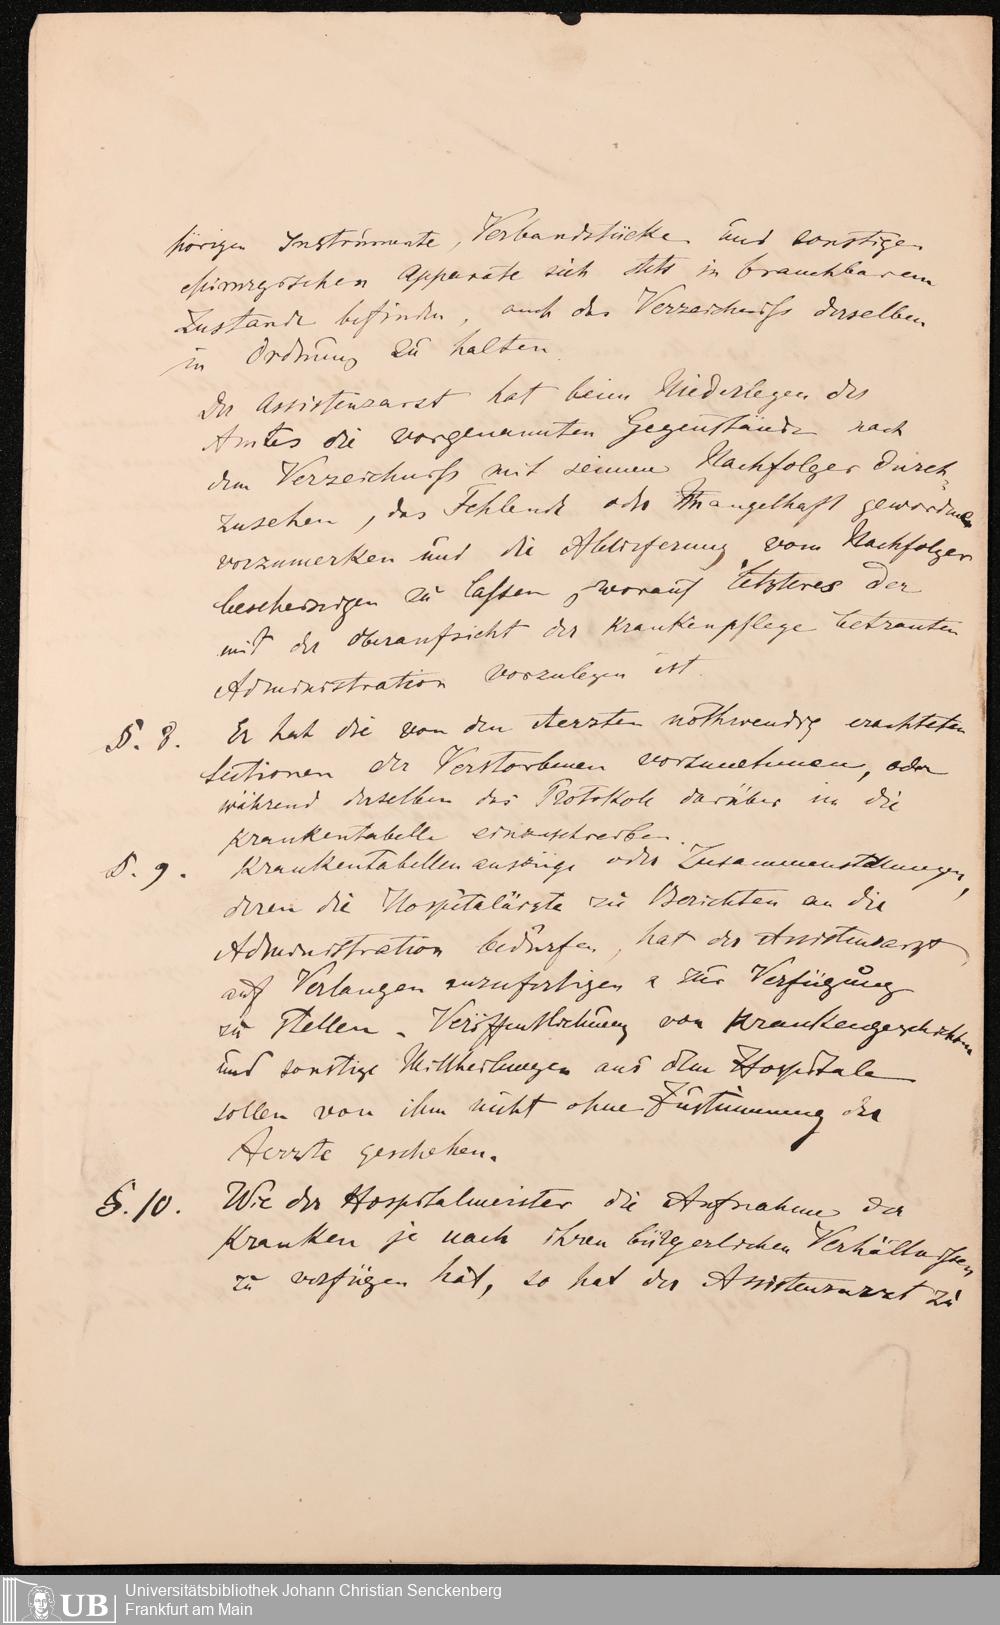 hörigen Instrumente, Verbandstücke und sonstigen
chirurgischen Apparate sich stets in brauchbarem
Zustande befinden, auch das Verzeichniß derselben
in Ordnung zu halten.
Der Assistenzarzt hat beim Niederlegen des
Amtes die vorgenannten Gegenstände nach
dem Verzeichniß mit seinem Nachfolger durch-
zusehen, das Fehlende oder Mangelhaft gewordene
vorzumerken und die Ablieferung vom Nachfolger
bescheinigen zu lassen, worauf letzteres der
mit der Oberaufsicht der Krankenpflege betrauten
Administration vorzulegen ist.
§. 8. Er hat die von den Aerzten nothwendig erachteten
Sectionen der Verstorbenen vorzunehmen, oder
während derselben das Protokoll darüber in die
Krankentabelle einzuschreiben.
§. 9. Krankentabellenauszüge oder Zusammenstellungen,
deren die Hospitalärzte zu Berichten an die
Administration bedürfen, hat der Assistenzarzt
auf Verlangen anzufertigen & zur Verfügung
zu stellen. Veröffentlichung von Krankengeschichten
und sonstige Mittheilungen aus dem Hospitale
sollen von ihm nicht ohne Zustimmung der
Aerzte geschehen.
§. 10. Wie der Hospitalmeister die Aufnahme der
Kranken je nach ihren bürgerlichen Verhältnissen
zu verfügen hat, so hat der Assistenzarzt zu
UB Universitätsbibliothek Johann Christian Senckenberg
Frankfurt am Main